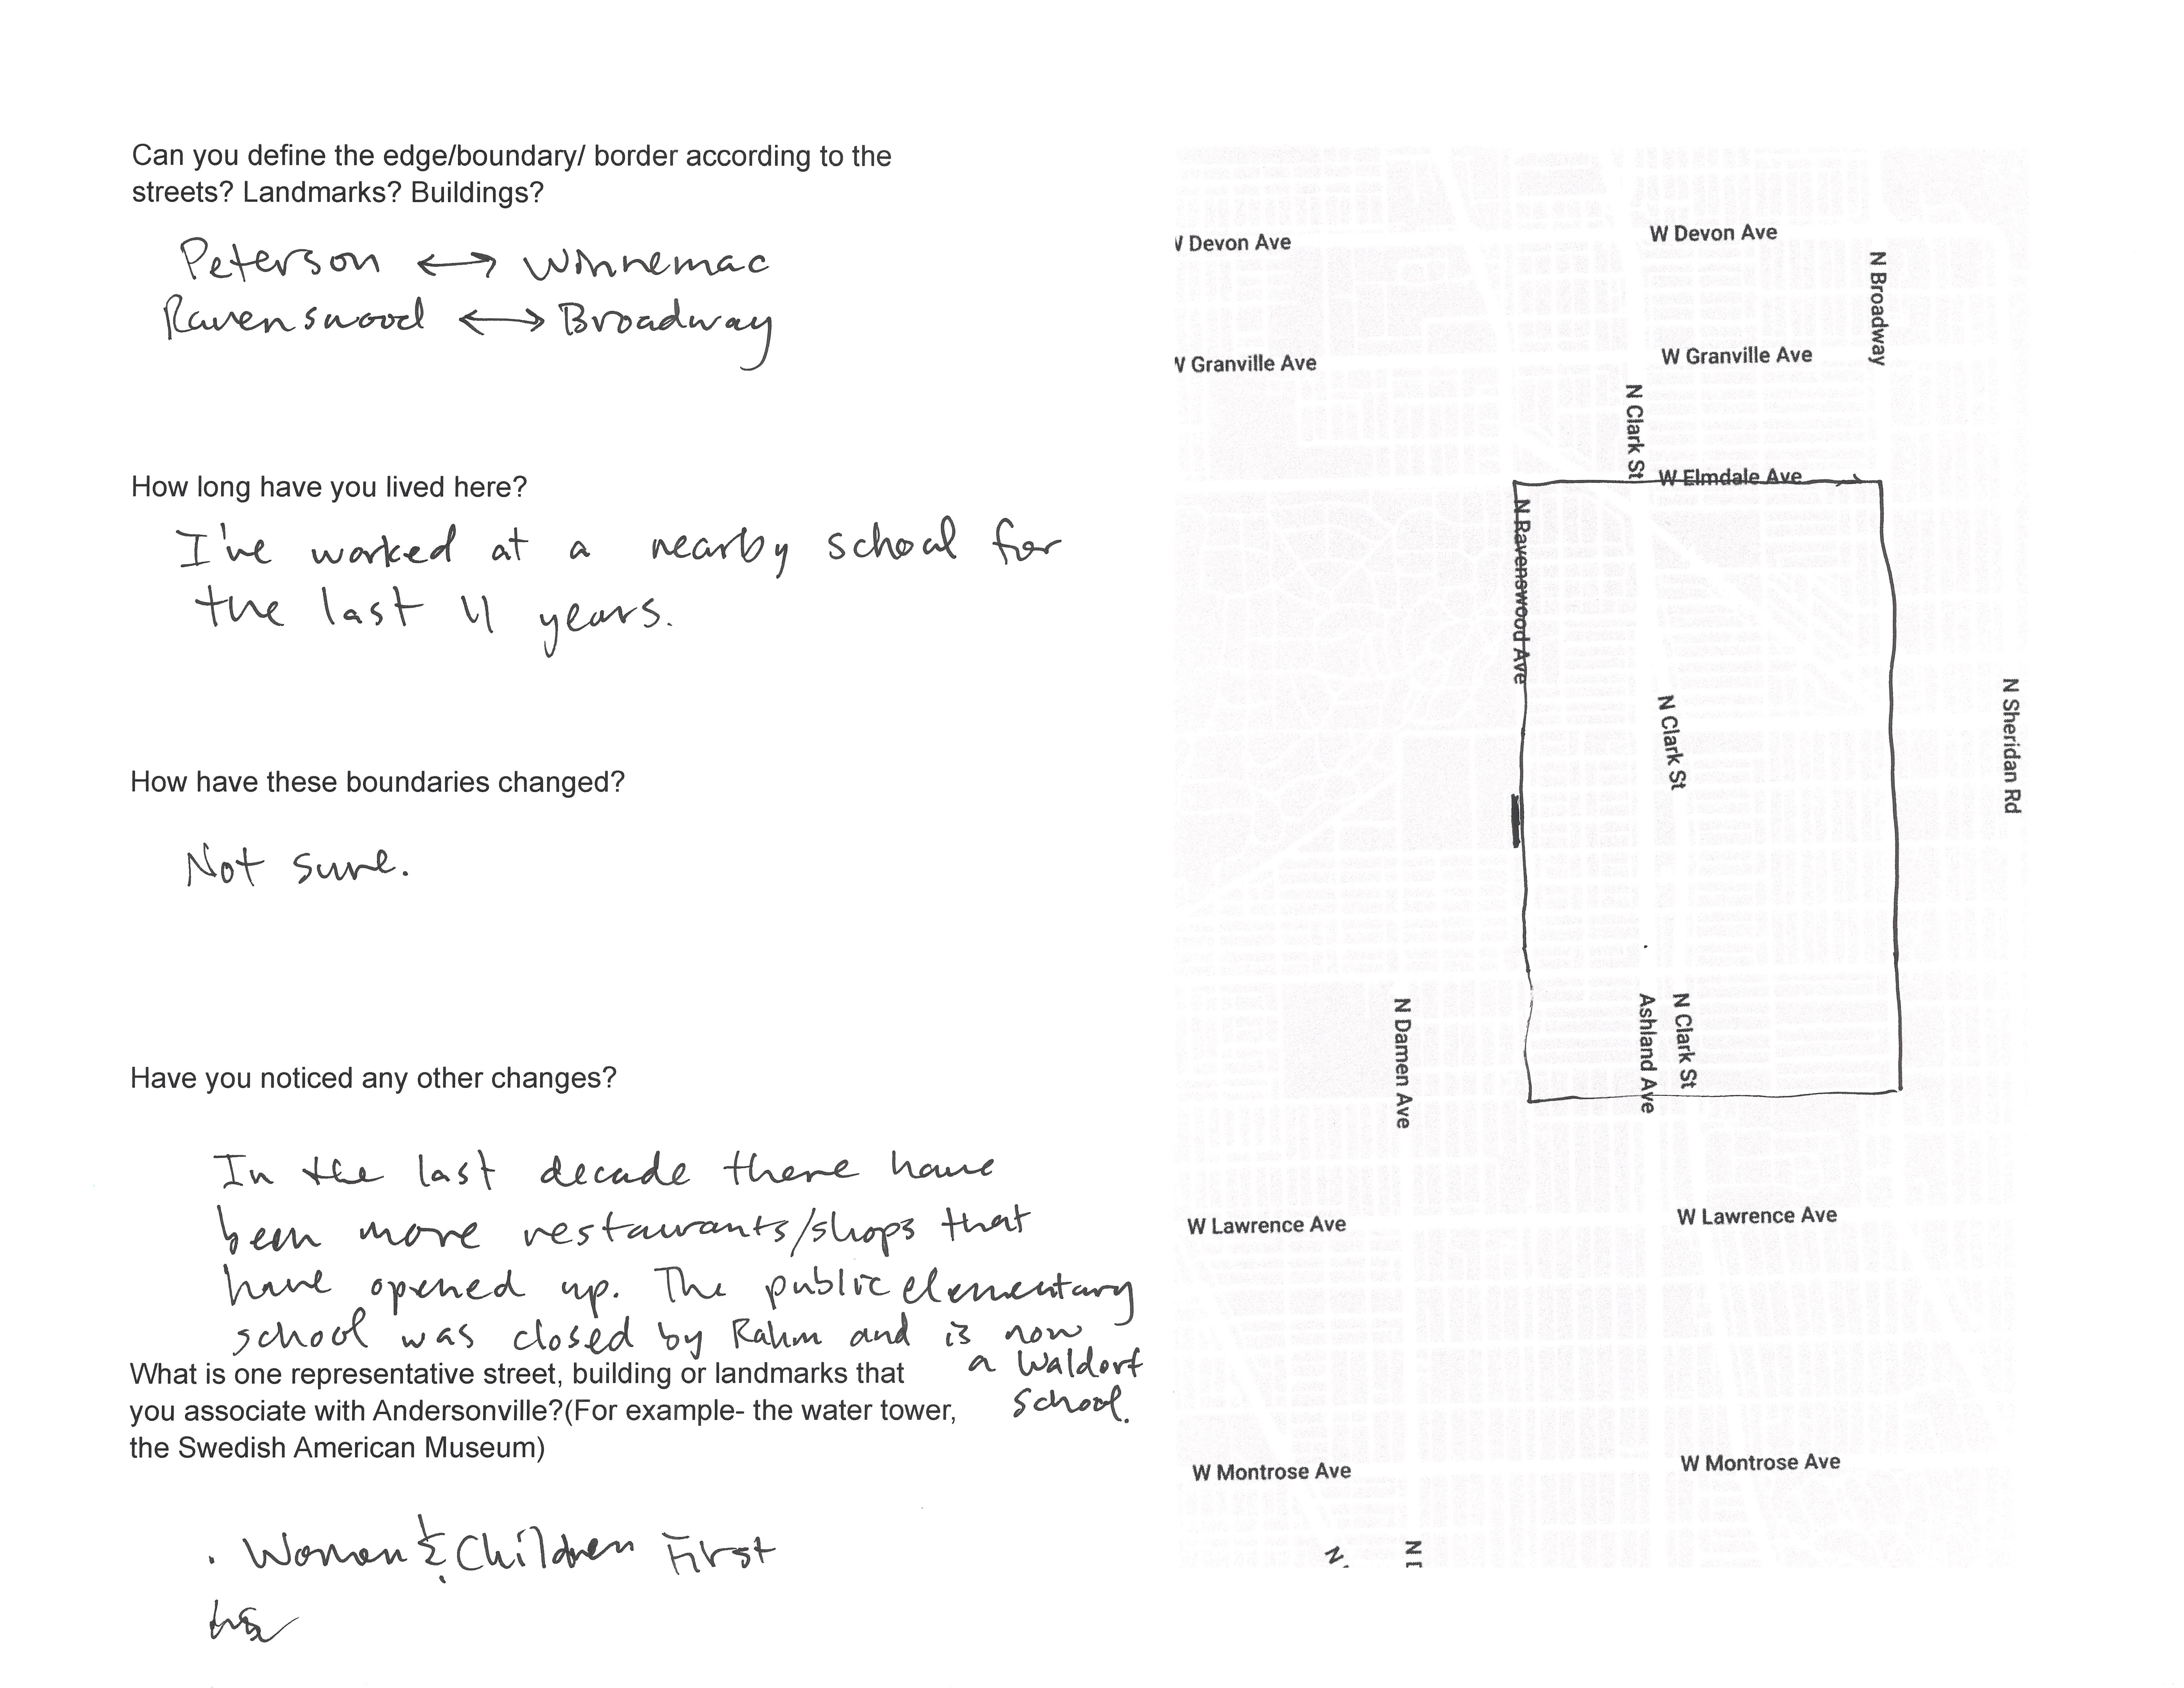 Can you define the edge/boundary/ border according to the
streets? Landmarks? Buildings?
Peterson ⟷ Winnemac
Ravenswood ⟷ Broadway
How long have you lived here?
I've worked at a nearby school for
the last 11 years.
How have these boundaries changed?
Not sure.
Have you noticed any other changes?
In the last decade there have
been more restaurants/shops that
have opened up. The public elementary
school was closed by Rahm and is now
a Waldorf
school.
What is one representative street, building or landmarks that
you associate with Andersonville?(For example- the water tower,
the Swedish American Museum)
· Women & Children First
W Devon Ave
W Devon Ave
N Broadway
W Granville Ave
W Granville Ave
N Clark St
W Elmdale Ave
N Ravenswood Ave
N Clark St
N Sheridan Rd
N Damen Ave
Ashland Ave
N Clark St
W Lawrence Ave
W Lawrence Ave
W Montrose Ave
W Montrose Ave
N
N